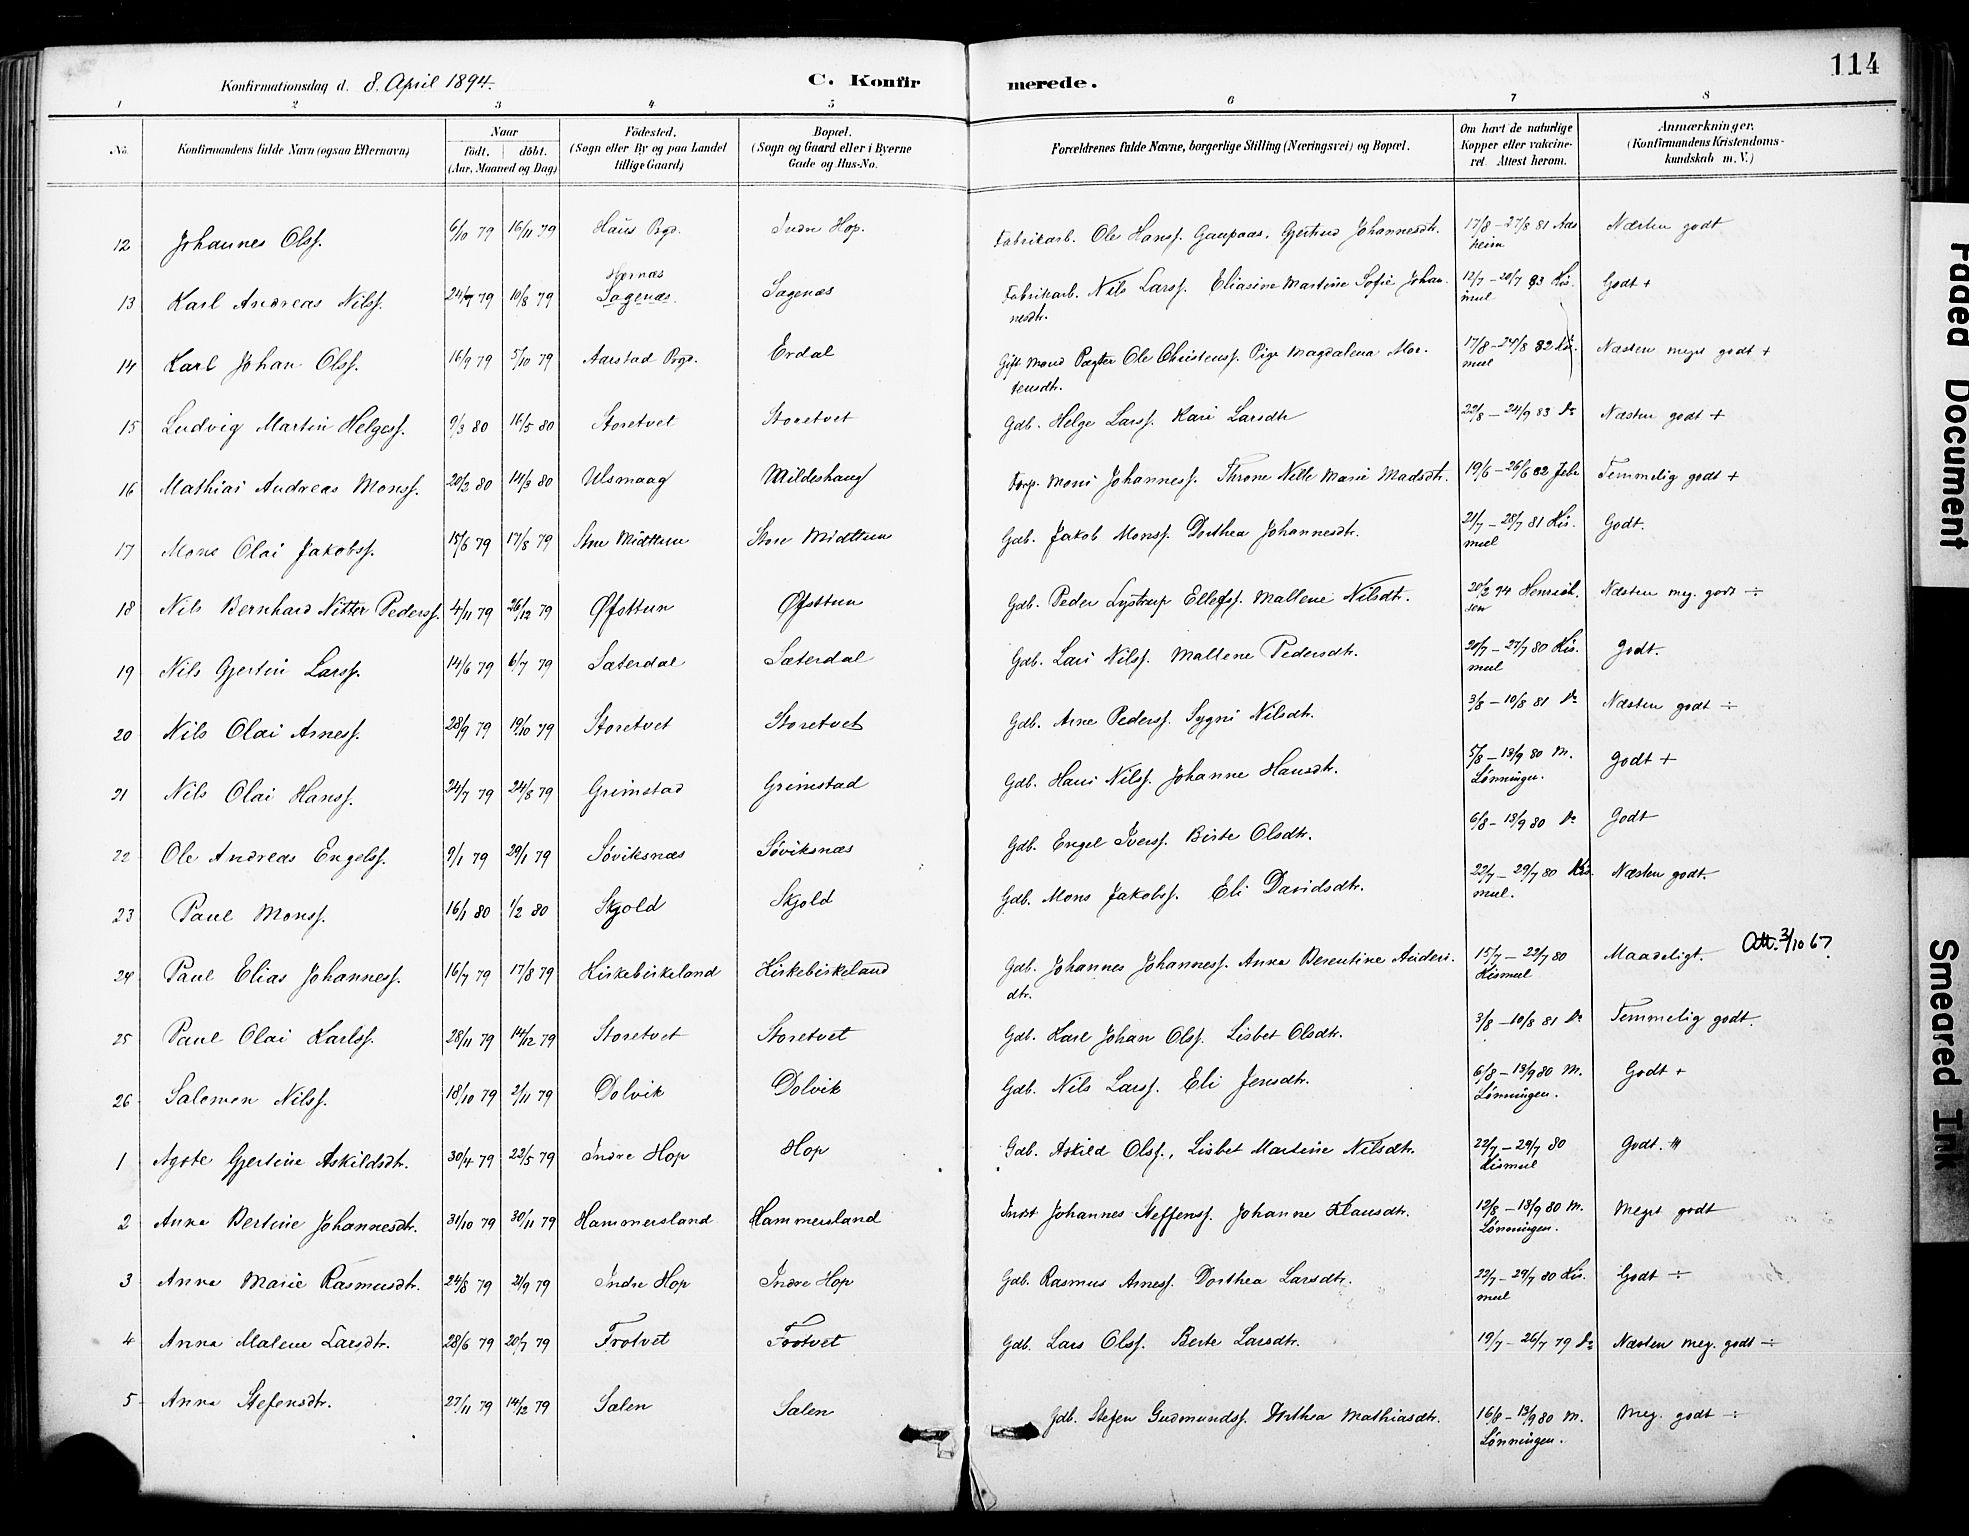 114
Konfirmationsdag d. 8. April 1894.
C. Konfir merede.
1 2 3 4 5 6 7 8
No. Konfirmandens fulde Navn (ogsaa Efternavn) Naar født. døbt. (Aar, Maaned og Dag) Fødested. (Sogn eller By og paa Landet tillige Gaard) Bopæl. (Sogn og Gaard eller i Byerne Gade og Hus-No. Forældrenes fulde Navne, borgerlige Stilling (Næringsvei) og Bopæl. Om havt de naturlige Kopper eller vakcineret. Attest herom. Anmærkninger. (Konfirmandens Kristendomskundskab m. V.)
12 Johannes Olsf. 6/10 79 16/11 79 Haus Pgd. Indre Hop. Fabrikarb. Ole Hansf. Gaupaas. Gjertrud Johannesdtr. 17/8 – 27/8 81 Aas Næsten godt
heim
13 Karl Andreas Nilsf. 24/7 79 10/8 79 Hærnæs Sagenæs. Sagenæs Fabrikarb. Nils Larsf. Eliasine Martine Sofie Johan- 12/7 – 20/7 83 Kis. Godt +
nesdtr. mul
14 Karl Johan Olsf. 16/9 79 5/10 79 Aarstad Pgd. Erdal Gift Mand Pægter Ole Christensf. Pige Magdalena Mor- 17/8 – 24/8 82 Kis. Næsten meget godt +
tensdtr. mul
15 Ludvig Martin Helgesf. 9/3 80 16/5 80 Storetvet Storetvet Gdb. Helge Larsf. Kari Larsdtr 22/8 – 24/9 83 Do Næsten godt +
16 Mathias Andreas Monsf. 20/2 80 14/3 80 Ulsmaag Mildeshaug Forp. Mons Johannesf. Throne Nille Marie Madsdtr. 19/6 – 26/6 82 Temmelig godt +
17 Mons Olai Jakobsf. 15/6 79 17/8 79 Store Midttun Store Midttun Gdb. Jakob Monsf. Dorthea Johannesdtr. 21/7 – 28/7 81 Kis. Godt.
mul
18 Nils Bernhard Nitter Pedersf. 4/11 79 26/12 79 Øfsttun Øfsttun Gdb. Peder Lystrup Ellefsf. Mallene Nilsdtr. 20/2 94 Henrik- Næsten meg. godt ÷
sen
19 Nils Gjertin Larsf. 14/6 79 6/7 79 Sæterdal Sæterdal Gdb. Lars Nilsf. Mallene Pedersdtr. 20/7 – 27/7 80 Kis. Godt.
mul
20 Nils Olai Arnesf. 28/9 79 19/10 79 Storetvet Storetvet Gdb. Arne Pedersf. Sygni Nilsdtr. 3/8 – 10/8 81 Do Næsten godt ÷
21 Nils Olai Hansf. 24/7 79 24/8 79 Grimstad Grimstad Gdb. Hans Nilsf. Johanne Hansdtr. 5/8 – 13/9 80 M. Godt +
Lønningen.
22 Ole Andreas Engelsf. 9/1 79 29/1 79 Søviksnæs Søviksnæs Gdb. Engel Iversf. Birte Olsdtr. 6/8 – 13/9 80 Do Godt
23 Paul Monsf. 16/1 80 1/2 80 Skjold Skjold Gdb. Mons Jakobsf. Eli Davidsdtr. 22/7 – 29/7 80 Kis. Næsten godt.
mul.
24 Paul Elias Johannesf. 16/7 79 17/8 79 Kirkebirkeland Kirkebirkeland Gdb. Johannes Johannesf. Anna Berentine Anders- 15/7 – 22/7 80 Maadeligt. Att. 3/10 67
dtr. Kismul
25 Paul Olai Karlsf. 28/11 79 14/12 79 Storetvet Storetvet Gdb. Karl Johan Olsf. Lisbet Olsdtr. 3/8 – 10/8 81 Do Temmelig godt.
26 Salomon Nilsf. 18/10 79 2/11 79 Dolvik Dolvik Gdb. Nils Larsf. Eli Jensdtr. 6/8 – 13/9 80 M. Godt +
Lønningen.
1 Agate Gjertine Askildsdtr. 30/4 79 22/5 79 Indre Hop Hop Gdb. Askild Olsf., Lisbet Martine Nilsdtr. 22/7 – 29/7 80 Godt.
Kismul
2 Anna Bertine Johannesdtr. 31/10 79 30/11 79 Hammersland Hammersland Indst Johannes Steffensf. Johanne Klausdtr. 12/8 – 13/9 80 M. Meget godt
Lønningen.
3 Anna Marie Rasmusdtr. 24/8 79 21/9 79 Indre Hop Indre Hop Gdb. Rasmus Arnesf. Dorthea Larsdtr. 22/7 – 29/7 80 Kis. Godt ÷
mul
4 Anna Malene Larsdtr. 28/6 79 20/7 79 Trotvet Trotvet Gdb. Lars Olsf. Berte Larsdtr. 19/7 – 26/7 79 Do Næsten meg. godt ÷
5 Anna Stefensdtr. 27/11 79 14/12 79 Sælen Sælen Gdb. Stefen Gudmundsf. Dorthea Mathiasdtr. 16/8 – 13/9 80 M. Meg. godt ÷
Lønningen.
Faded Document
Smeared Ink